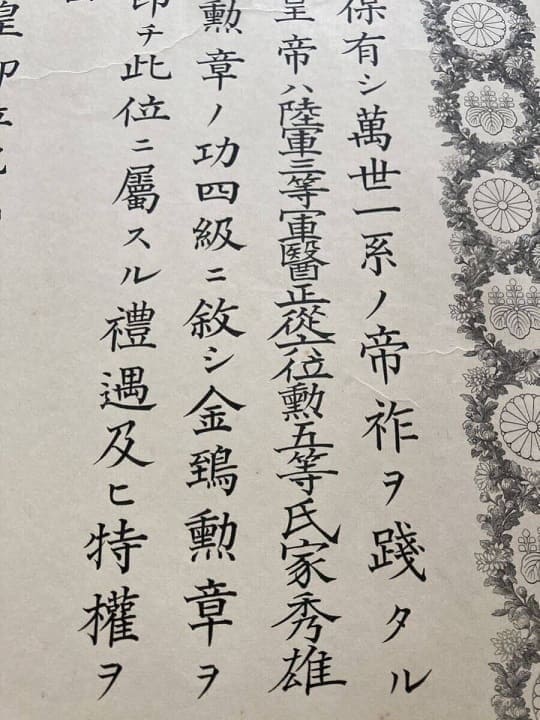 保有シ萬世一系ノ帝祚ヲ踐タル
皇帝ハ陸軍三等軍醫正從六位勳五等氏家秀雄
勳章ノ功四級ニ敘シ金鵄勳章ヲ
即チ此位ニ屬スル禮遇及ヒ特權ヲ
皇即位紀